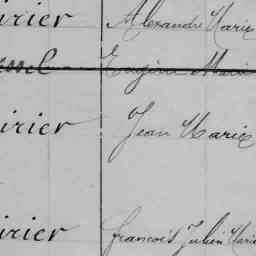 irier Alexandre Marie
Eugène Marie
irier Jean Marie
irier François Julien Marie